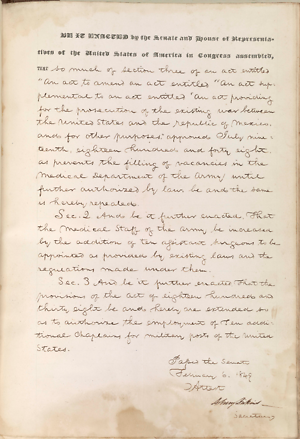 BE IT ENACTED by the Senate and House of Representa-
tives of the United States of America in Congress assembled,
THAT so much of section three of an act entitled
"An act to amend an act entitled "An act sup-
plemental to an act entitled "An act providing
for the prosecution of the existing war between
the United States and the republic of Mexico
and for other purposes" approved July nine-
teenth, eighteen hundred and forty eight
as prevents the filling of vacancies in the
Medical Department of the Army, until
further authorized by law be and the same
is hereby repealed.
Sec. 2. And be it further enacted, That
the Medical Staff of the Army, be increased
by the addition of ten assistant surgeons to be
appointed as provided by existing laws and the
regulations made under them.
Sec. 3. And be it further enacted That the
provisions of the act of eighteen hundred and
thirty eight be and hereby are extended so
as to authorize the employment of Ten addi-
tional Chaplains for military posts of the United
States.
Passed the Senate
1849
Attest
Secretary